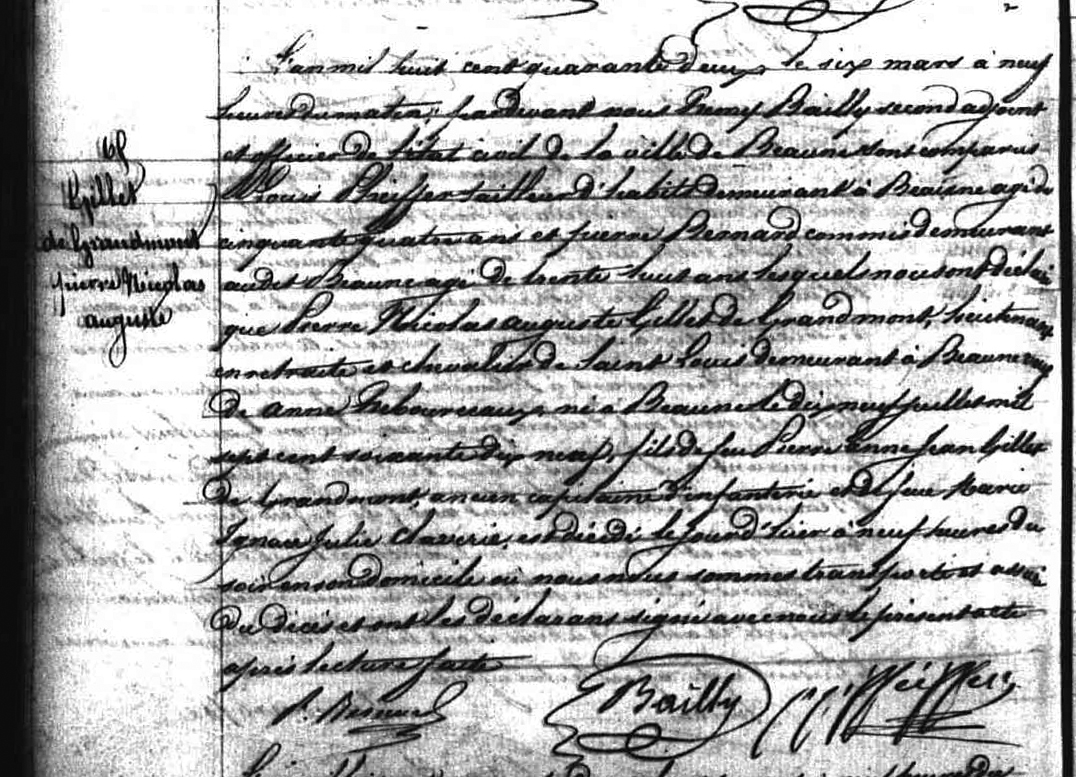 L'an mil huit cent quarante deux, le six mars à neuf
heures du matin, pardevant nous Remy Bailly second adjoint
et officier de l'état civil de la ville de Beaune sont comparus
Louis Pfeiffer tailleur d'habits demeurant à Beaune agé de
cinquante quatre ans et pierre Bernard commis demeurant
audit Beaune agé de trente huit ans lesquels nous ont déclaré
que Pierre Nicolas auguste Gillet de Grandmont, lieutenant
en retraite et chevalier de Saint Louis demeurant à Beaune
de anne né à Beaune le dix neuf juillet mil
sept cent soixante dix neuf, fils de feu Pierre anne Jean Gillet
de Grandmont, ancien capitaine d'infanterie et de feue Marie
Ignace Julie Claverie, est décédé le jour d'hier à neuf heures du
soir en son domicile où nous nous sommes transporté et assuré
du décès et ont les déclarans signé avec nous le présent acte
après lecture faite
Gillet
de Grandmont
pierre Nicolas
auguste
P. Bernard Bailly Pfeiffer